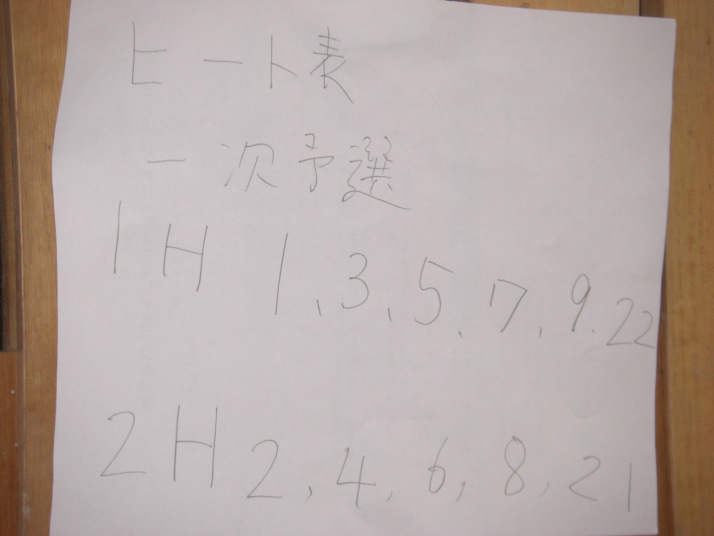 ヒート表
一次予選
1H 1、3、5、7、9、22
2H 2、4、6、8、21